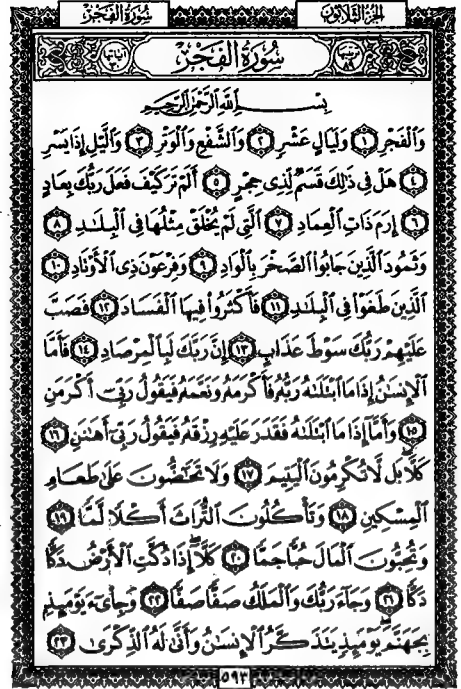 الجزء الثلاثون
سُورَةُ الفَجْرِ
ترتيبها ٨٩
سُورَةُ الفَجْرِ
آياتها ٣٠
بِسْمِ اللَّهِ الرَّحْمَٰنِ الرَّحِيمِ
وَالْفَجْرِ ۝١ وَلَيَالٍ عَشْرٍ ۝٢ وَالشَّفْعِ وَالْوَتْرِ ۝٣ وَاللَّيْلِ إِذَا يَسْرِ
۝٤ هَلْ فِي ذَٰلِكَ قَسَمٌ لِّذِي حِجْرٍ ۝٥ أَلَمْ تَرَ كَيْفَ فَعَلَ رَبُّكَ بِعَادٍ
۝٦ إِرَمَ ذَاتِ الْعِمَادِ ۝٧ الَّتِي لَمْ يُخْلَقْ مِثْلُهَا فِي الْبِلَٰدِ ۝٨
وَثَمُودَ الَّذِينَ جَابُوا الصَّخْرَ بِالْوَادِ ۝٩ وَفِرْعَوْنَ ذِي الْأَوْتَادِ ۝١٠
الَّذِينَ طَغَوْا فِي الْبِلَٰدِ ۝١١ فَأَكْثَرُوا فِيهَا الْفَسَادَ ۝١٢ فَصَبَّ
عَلَيْهِمْ رَبُّكَ سَوْطَ عَذَابٍ ۝١٣ إِنَّ رَبَّكَ لَبِالْمِرْصَادِ ۝١٤ فَأَمَّا
الْإِنسَٰنُ إِذَا مَا ابْتَلَىٰهُ رَبُّهُ فَأَكْرَمَهُ وَنَعَّمَهُ فَيَقُولُ رَبِّي أَكْرَمَنِ
۝١٥ وَأَمَّا إِذَا مَا ابْتَلَىٰهُ فَقَدَرَ عَلَيْهِ رِزْقَهُ فَيَقُولُ رَبِّي أَهَٰنَنِ ۝١٦
كَلَّا بَل لَّا تُكْرِمُونَ الْيَتِيمَ ۝١٧ وَلَا تَحَٰضُّونَ عَلَىٰ طَعَامِ
الْمِسْكِينِ ۝١٨ وَتَأْكُلُونَ التُّرَاثَ أَكْلًا لَّمًّا ۝١٩
وَتُحِبُّونَ الْمَالَ حُبًّا جَمًّا ۝٢٠ كَلَّا إِذَا دُكَّتِ الْأَرْضُ دَكًّا
دَكًّا ۝٢١ وَجَاءَ رَبُّكَ وَالْمَلَكُ صَفًّا صَفًّا ۝٢٢ وَجِايءَ يَوْمَئِذٍ
بِجَهَنَّمَ يَوْمَئِذٍ يَتَذَكَّرُ الْإِنسَٰنُ وَأَنَّىٰ لَهُ الذِّكْرَىٰ ۝٢٣
٥٩٣